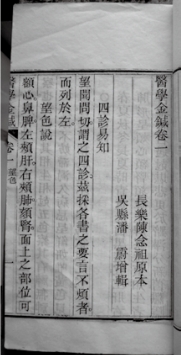 醫學金鍼卷一
長樂陳念祖原本
吳縣潘霨增輯
四診易知
望聞問切謂之四診茲採各書之要言不煩者
而列於左
望色說
額心鼻脾左頰肝右頰肺頦腎面上之部位可
醫學金鍼 卷一 望色 一